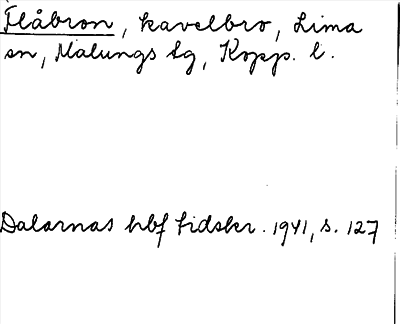 Flåbron, kavelbro, Lima
sn, Malungs tg, Kopp. l.
Dalarnas hbf tidskr. 1941, s. 127